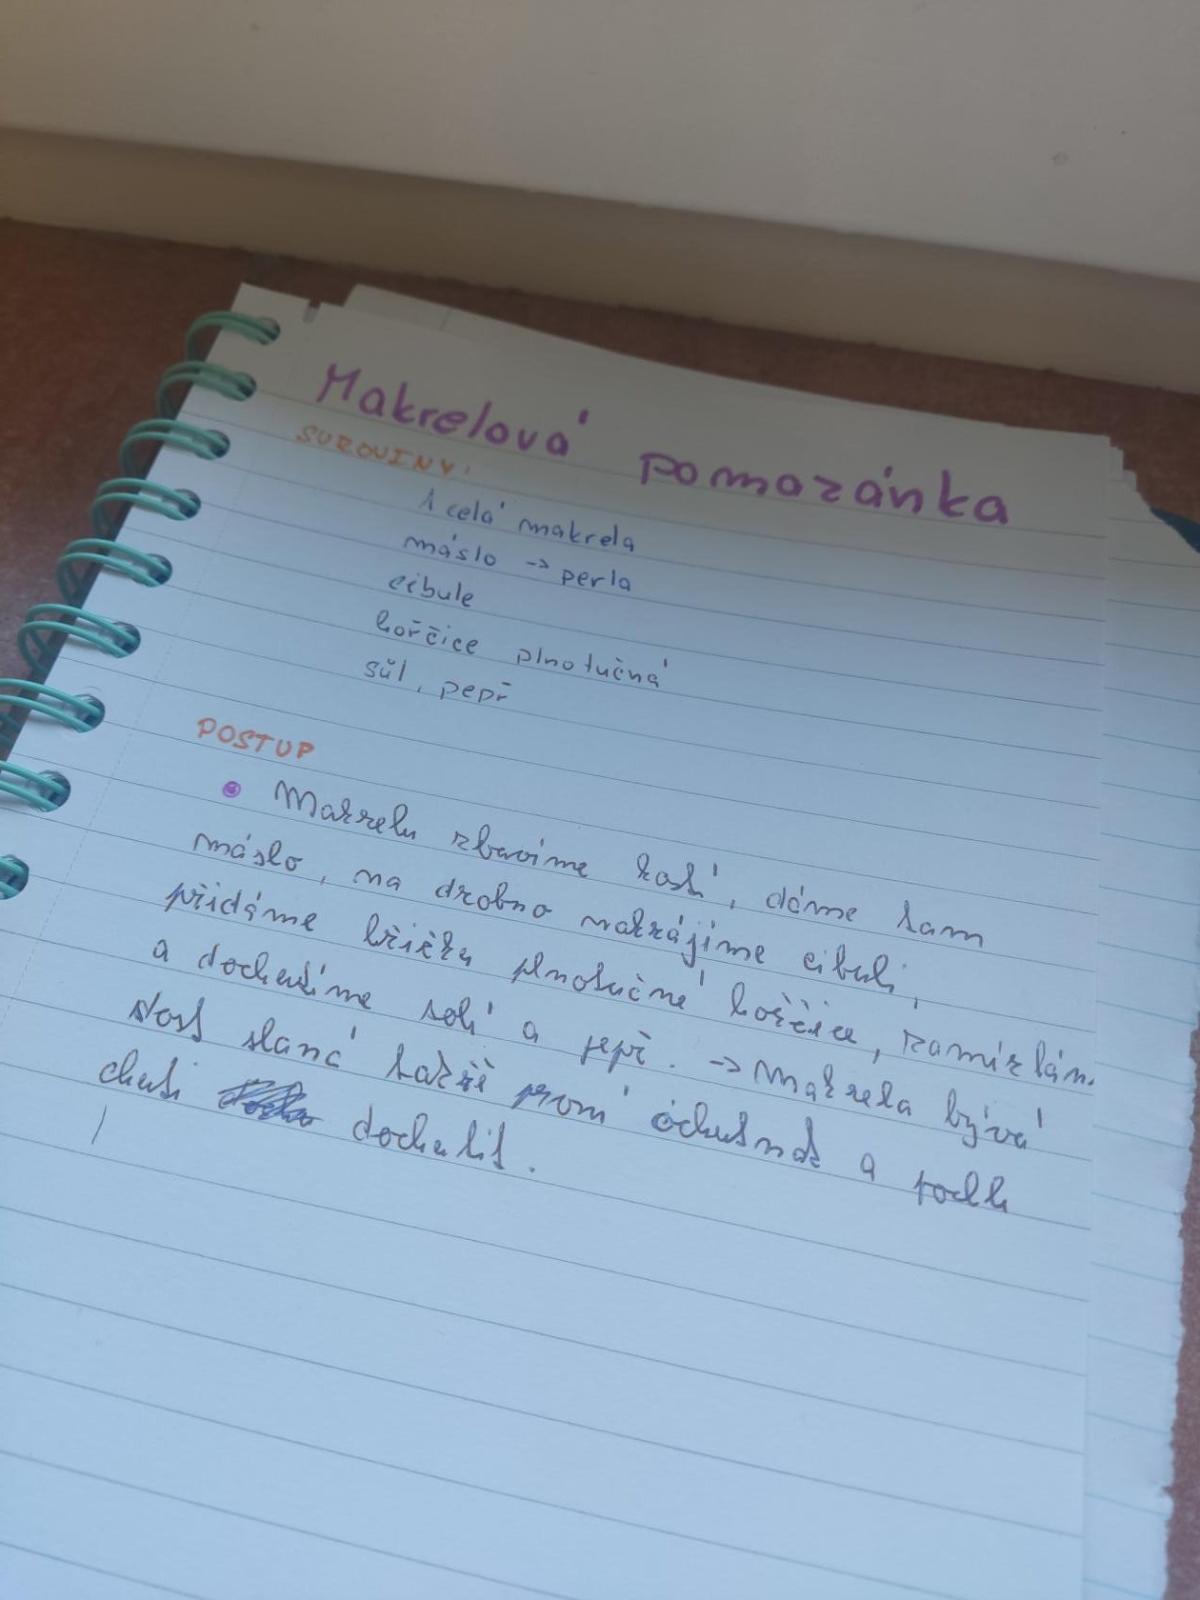 Makrelová pomazánka
SUROVINY:
1 celá makrela
máslo → perla
cibule
hořčice plnotučná
sůl, pepř
POSTUP
• Makrelu zbavíme kostí, dáme tam
máslo, na drobno nakrájíme cibuli,
přidáme lžičku plnotučné hořčice, zamícháme
a dochutíme solí a pepř. → Makrela bývá
dost slaná takže první ochutnat a podle
chuti dochutit.